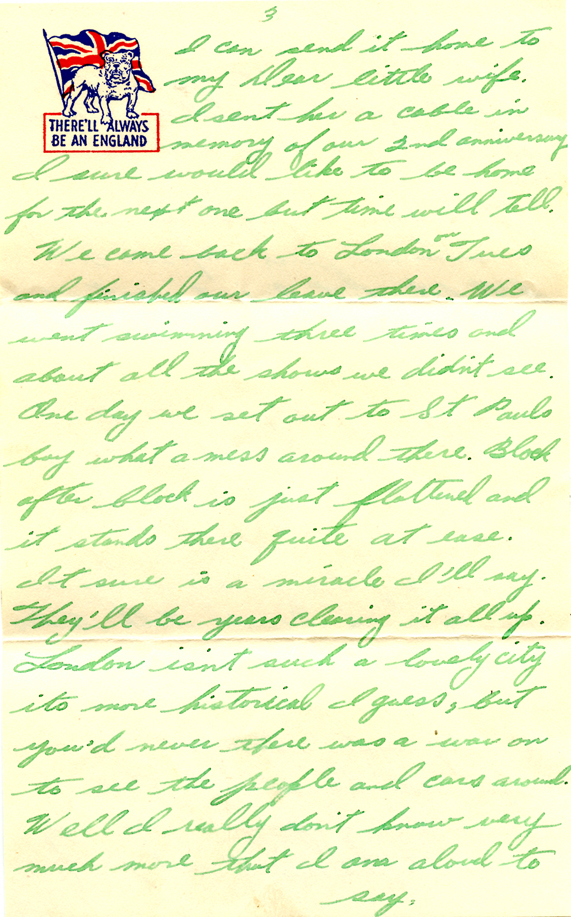 3
THERE'LL ALWAYS
BE AN ENGLAND
I can send it home to
my dear little wife.
I sent her a cable in
memory of our 2nd anniversary
I sure would like to be home
for the next one but time will tell.
We came back to London on Tues
and finished our leave there. We
went swimming three times and
about all the shows we didn't see.
One day we set out to St Pauls
boy what a mess around there. Block
after block is just flattened and
it stands there quite at ease.
It sure is a miracle I'll say.
They'll be years clearing it all up.
London isn't such a lovely city
its more historical I guess, but
you'd never there was a war on
to see the people and cars around.
Well I really don't know very
much more that I am aloud to
say.